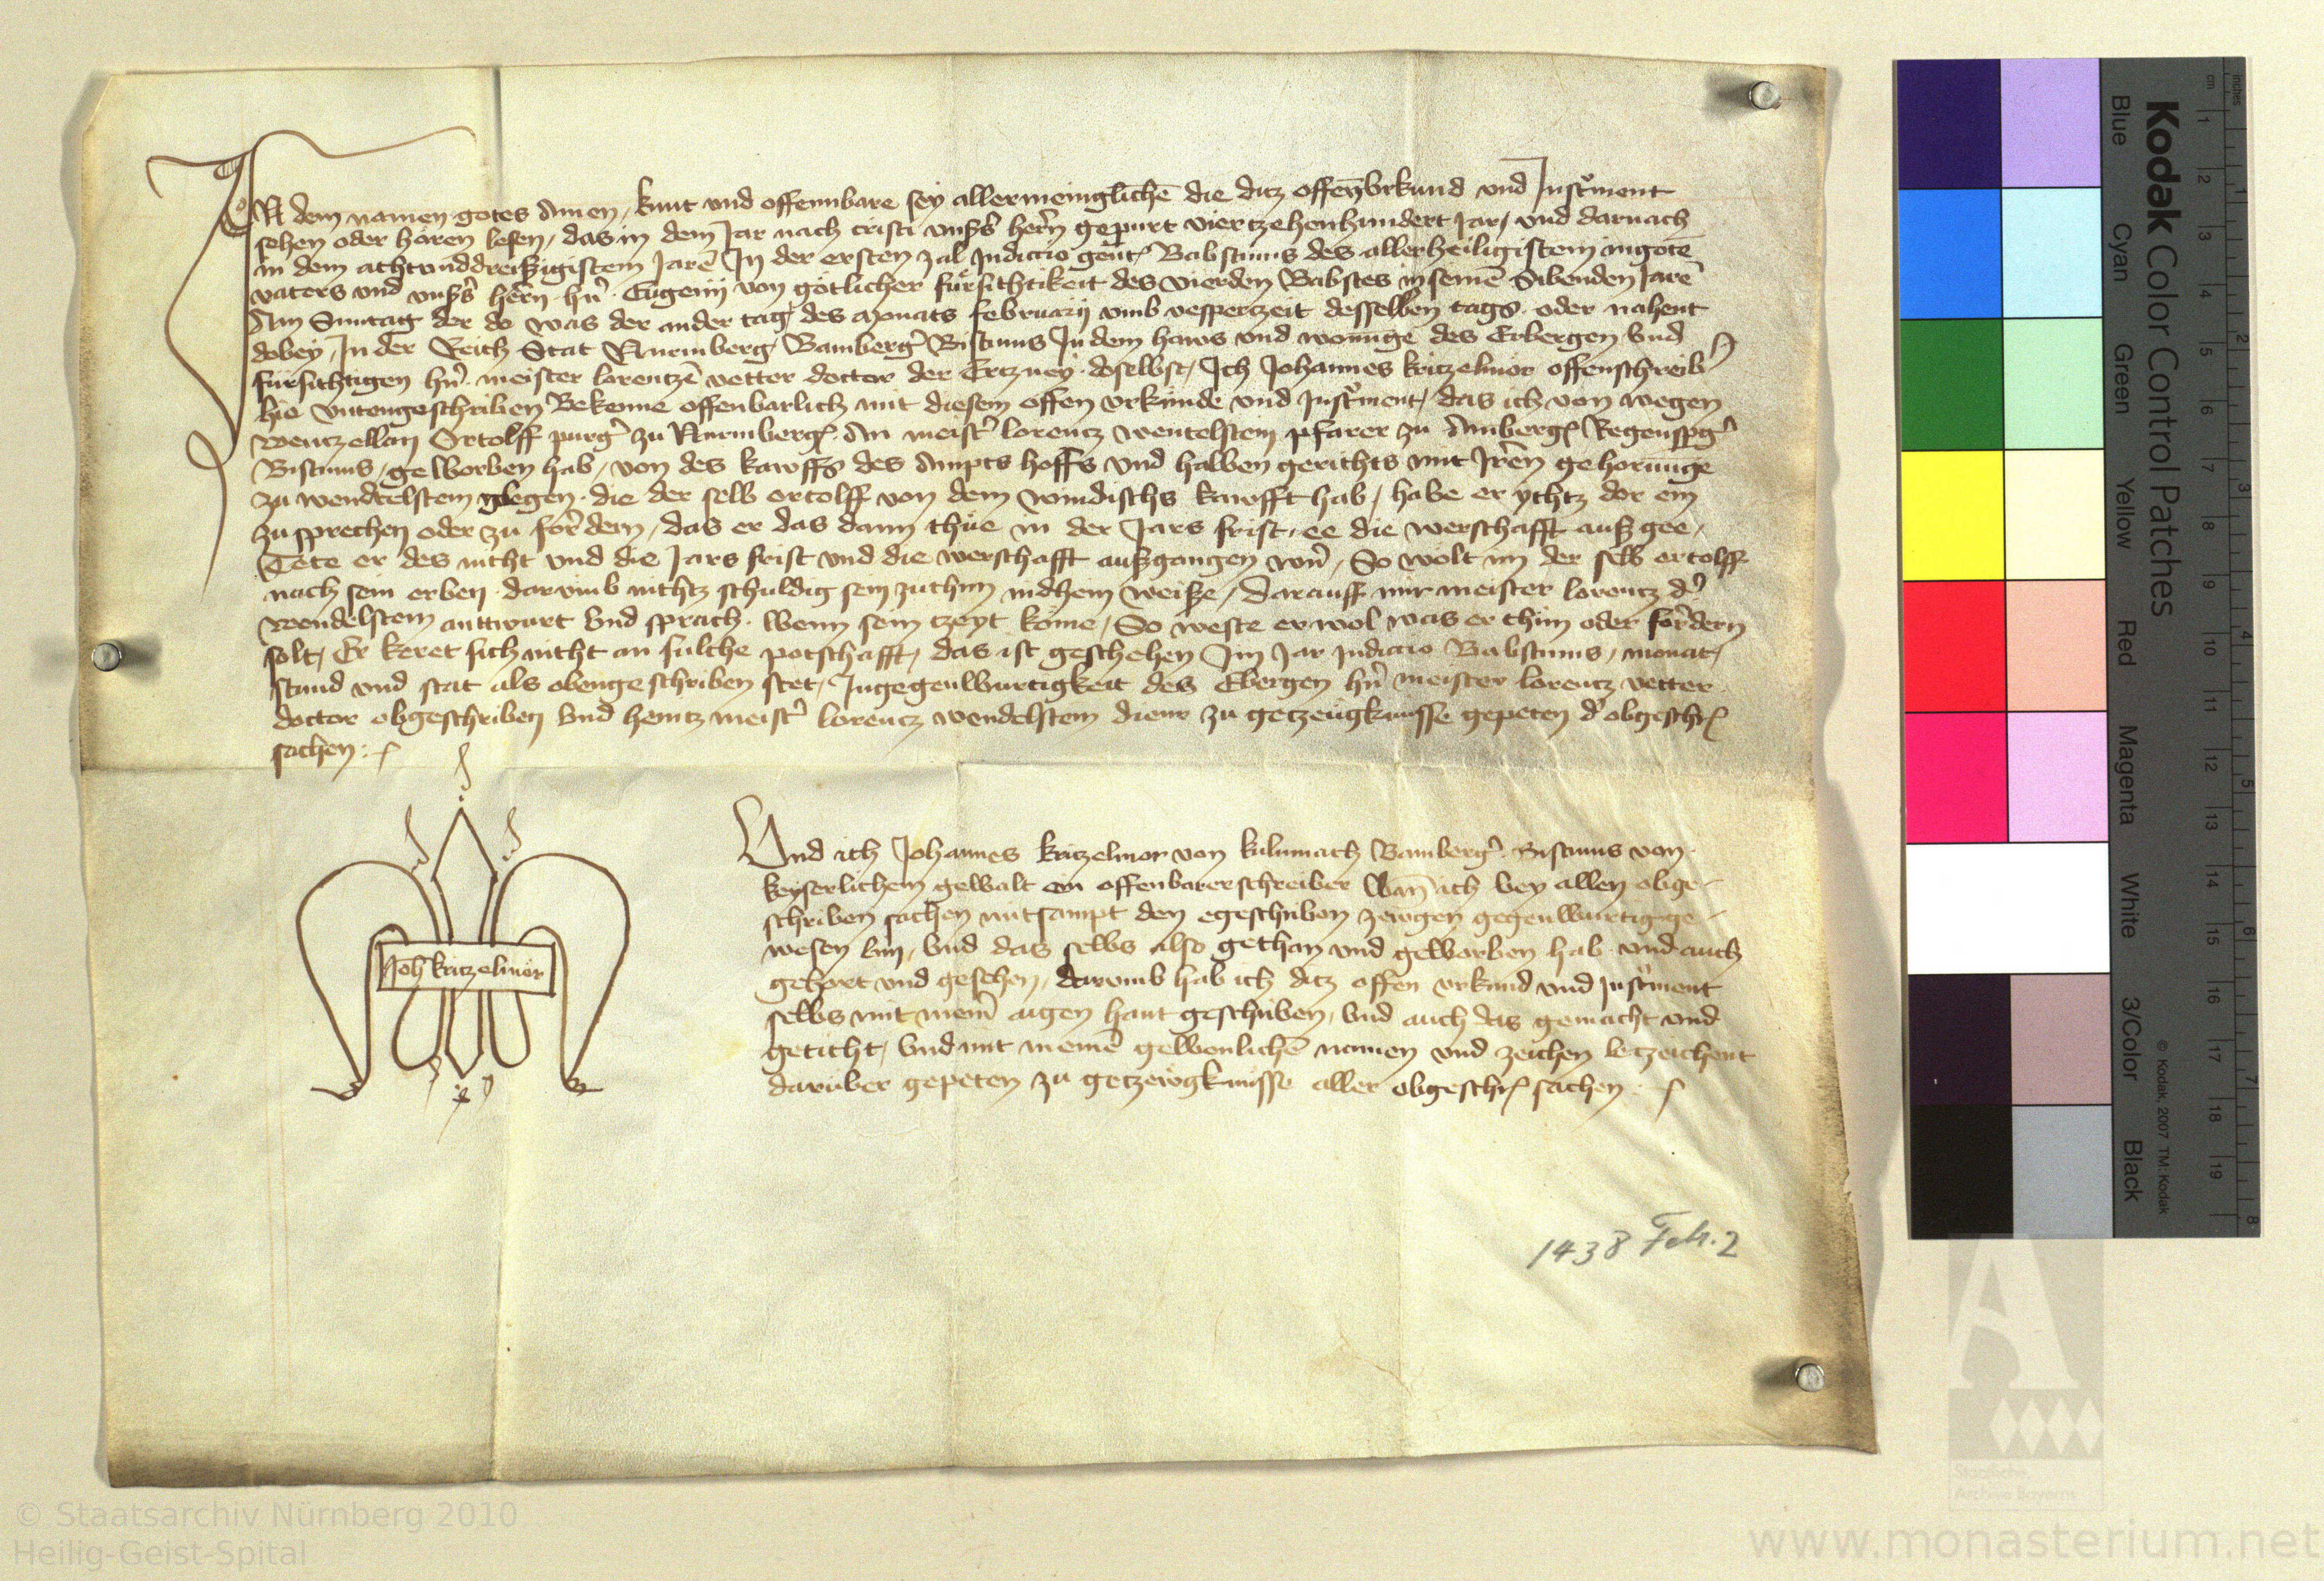 IN dem namen gotes Amen, kunt vnd offennbare sey allermeinglichē die ditz offen vrkund vnd Instrment
sehen oder hören lesen, das in dem Jar nach cristi vnßs hern gepurt viertzehenhundert Jar, vnd darnach
in dem achtunddreißigistem Jarē In der ersten zal Indictio gent Babstums des allerheiligistem ingote
vaters vnd vnßs hern hn Eugenij von götlicher fürsithtikeit des vierden Babstes in seinē Sibenden Jare
Am Suntag der do was der ander tag des monats februarij vmb vesperzeit desselben tags oder nahent
dobey, In der Reich Stat Nurmberg Bamberg Bistums In dem haws vnd wonūge des Erbergen vnd
fürsithtigen hn meister lorentzē vetter doctor der Ertzney doselbst, Ich Johannes kritzelmor offenschreib
hie vntengeschriben Bekenne offenbarlich mit diesem offen vrkunde vnd Instrment, das ich von wegen
wentzellan Ortolff purg zu Nurmberg An meist lorentz wentelstem pfarer zu Amberg Regenspg
Bistums, geworben hab, von des kawffs des Ampts hoffs vnd halben gerichts mit Jren gehorūnge
zu wendtelstem glegen die der selb ortolff von dem windischs kawfft hab, habe er ychtz dor ein
zu sprechen oder zu fordern, das er das dann thüe in der Jars frist, ee die werschafft auß gee,
Tete er des nicht vnd die Jars frist vnd die werschafft außgangen wn, So wolt im der selb ortolff
nach sein erben darvmb nichtz schuldig sein zuthun indhein weiße, darauff mir meister lorentz d
wendelstem anttwurt vnd sprach wenn sein tzeyt köme, So weste er wol was er thun oder fordern
solt, Er keret sich nicht an sulche potschafft, das ist geschehen Im Jar Indictio Babstums, monat,
stund vnd stat als obengeschriben stet, Ingegenwurtigkeit des Ebergen hn meister lorentz vetter
doctor obgeschriben vnd heintz meist lorentz wendelstem diener zu getzeugknusse gepeten d obgeschr
sachen
Joh kritzelmor
Vnd ich Johannes kritzelmor von kulmnach Bamberg Bistums von
keyserlichem gewalt ein offenbarerschreiber wan ich bey allen obge
schriben sachen mitsampt den egeschriben zewgen gegenwurtig ge
wesen bin, vnd das selbs also gethan vnd geworben hab vnd auch
gehort vnd gesehen, darvmb hab ich ditz offen vrkund vnd Instrment
selbs mit meinē aigen hant geschriben, vnd auch das gemacht vnd
geticht, vnd mit meinē gewonlichē namen vnd zeichen betzeichent
darüber gepeten zu getzewgknusse aller obgeschr sachen
1438 Feb. 2
Kodak Color Control Patches
© Kodak, 2007 TM: Kodak
Blue Cyan Green Yellow Red Magenta White 3/Color Black
inches 1 2 3 4 5 6 7 8
cm 1 2 3 4 5 6 7 8 9 10 11 12 13 14 15 16 17 18 19
Staatliche
Archive Bayerns
© Staatsarchiv Nürnberg 2010
Heilig-Geist-Spital
www.monasterium.net